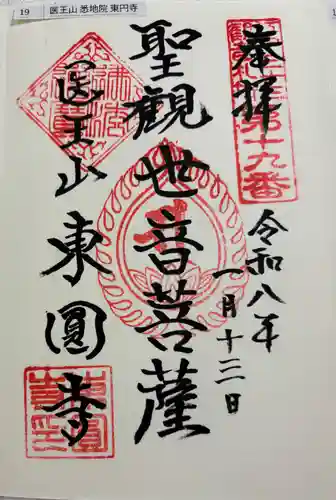 19 医王山 悉地院 東円寺
奉拝
第十九番
令和八年
一月十二日
聖觀世音菩薩
医王山
東圓寺